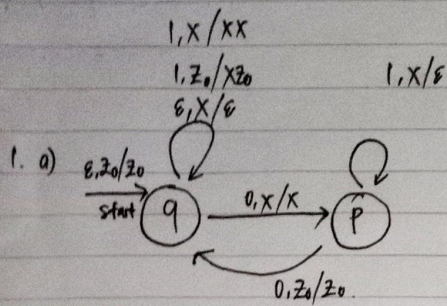 1, X / XX
1, Z₀ / XZ₀
ε, X / ε
1, X / ε
1. a)
ε, Z₀ / Z₀
start
q
0, X / X
p
0, Z₀ / Z₀.